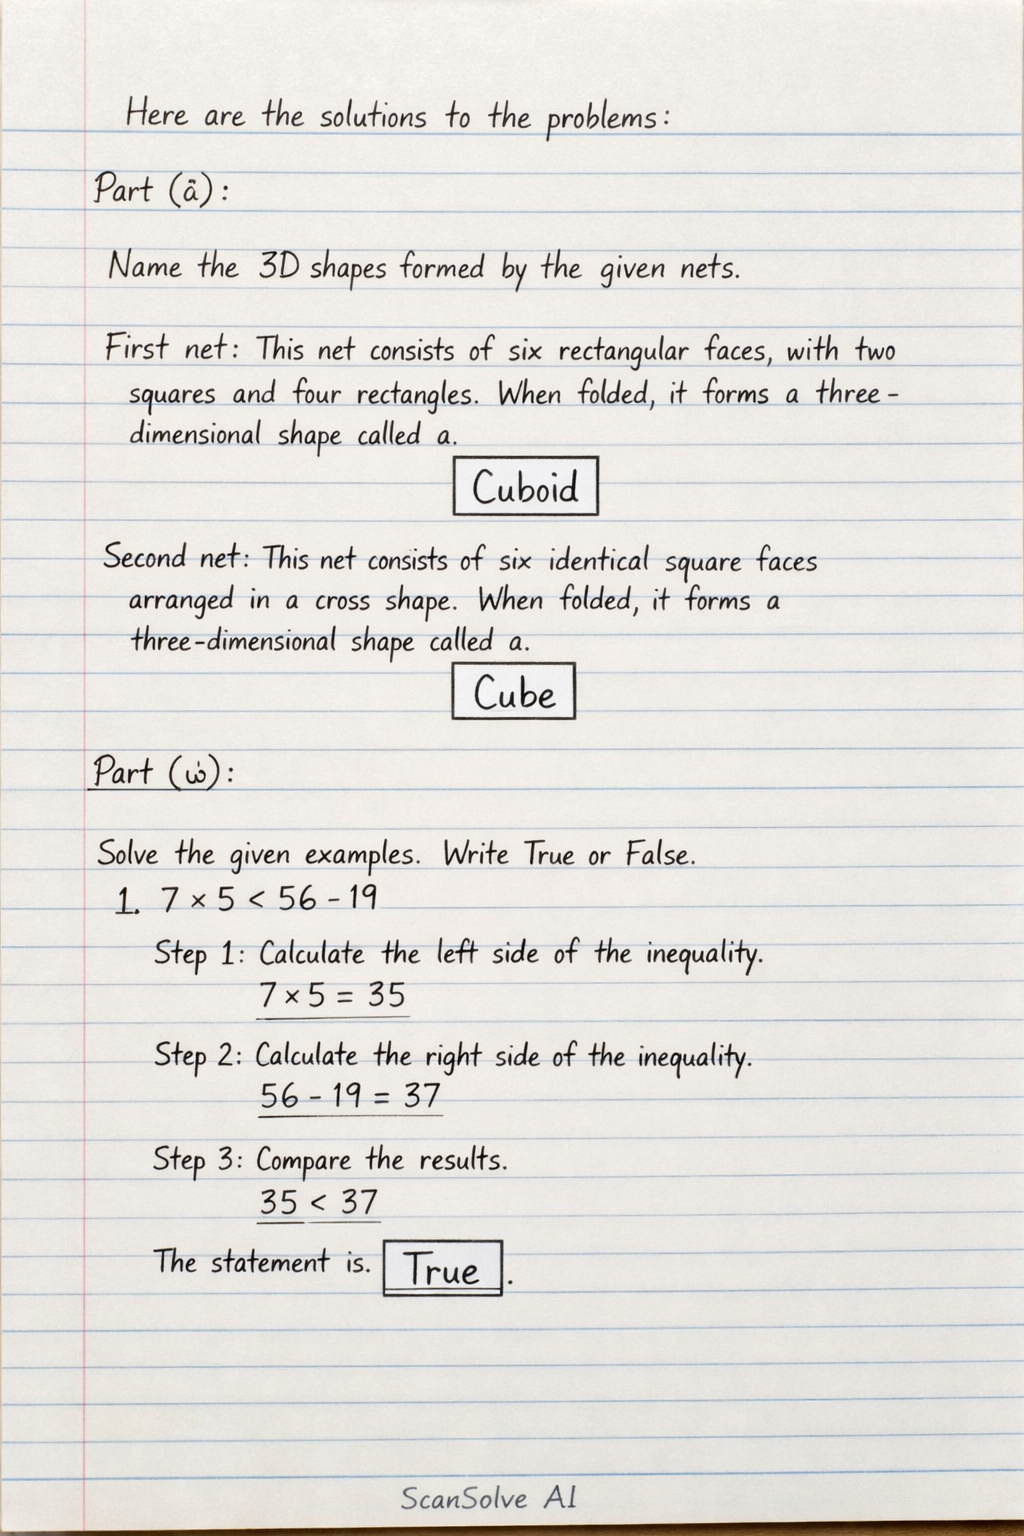 Here are the solutions to the problems:
Part (â):
Name the 3D shapes formed by the given nets.
First net: This net consists of six rectangular faces, with two
squares and four rectangles. When folded, it forms a three-
dimensional shape called a.
Cuboid
Second net: This net consists of six identical square faces
arranged in a cross shape. When folded, it forms a
three-dimensional shape called a.
Cube
Part ():
Solve the given examples. Write True or False.
1. 7 × 5 < 56 - 19
Step 1: Calculate the left side of the inequality.
7 × 5 = 35
Step 2: Calculate the right side of the inequality.
56 - 19 = 37
Step 3: Compare the results.
35 < 37
The statement is. True.
ScanSolve AI